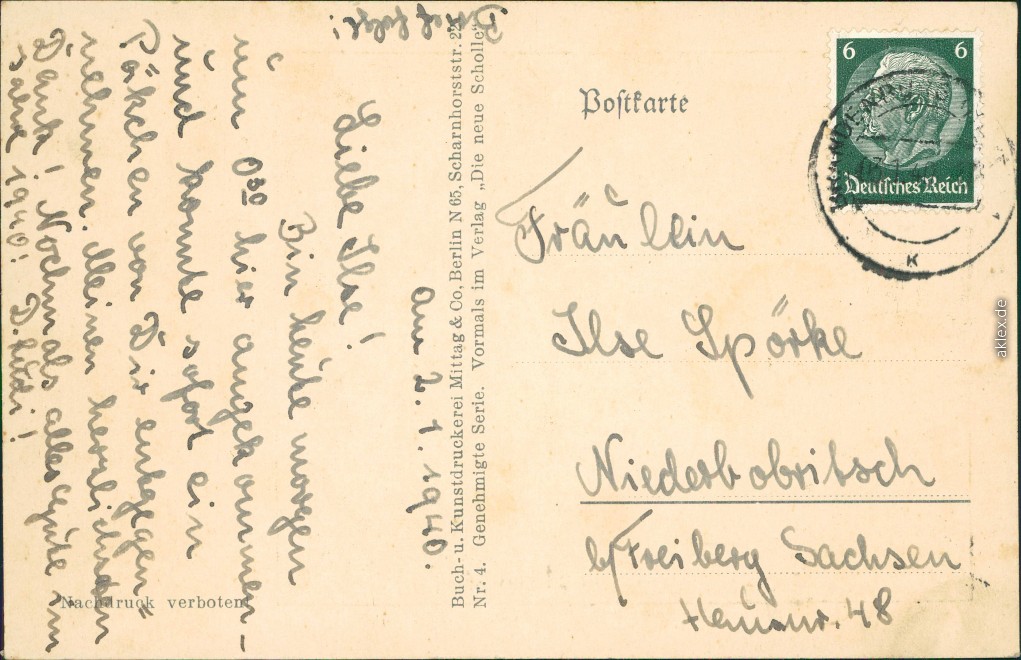 am 2. 1. 1940.
Liebe Ilse!
Bin heute morgen
um 0 30 hier angekommen –
und konnte sofort ein
Päkchen von Dir entgegen=
nehmen. Meinen herzlichsten
Dank! Nochmals alles Gute im
Jahre 1940! D. Rudi!
Nachdruck verboten!
Buch- u. Kunstdruckerei Mittag & Co, Berlin N 65, Scharnhorststr. 22
Nr. 4. Genehmigte Serie. Vormals im Verlag „Die neue Scholle“
Postkarte
6 6
Deutsches Reich
K
Fräulein
Ilse Spörke
Niederbobritsch
b/Freiberg Sachsen
Hausnr. 48
aklex.de